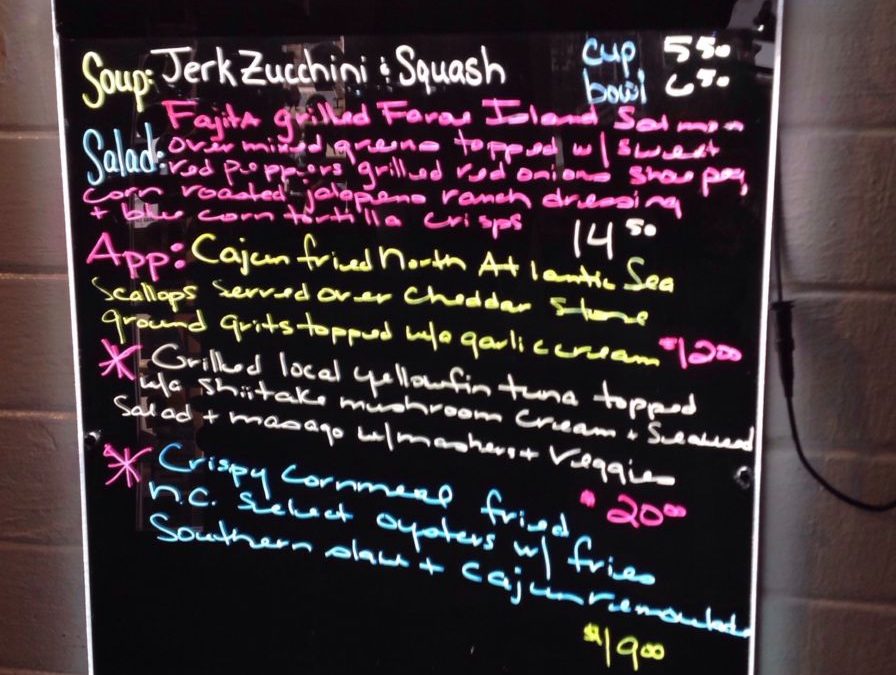 Soup: Jerk Zucchini & Squash cup 5 50
bowl 6 50
Fajita grilled Faroe Island Salmon
Salad: over mixed greens topped w/ sweet
red peppers grilled red onions Shoe peg
corn roasted jalapeno ranch dressing
+ blue corn tortilla crisps
14 50
App: Cajun fried North Atlantic Sea
Scallops served over Cheddar Stone
ground grits topped w/a garlic cream $12 00
* Grilled local yellowfin tuna topped
w/a shiitake mushroom cream + Seaweed
Salad + masago w/ mashers + Veggies
$20 00
* Crispy Cornmeal fried
n.c. Select oysters w/ fries
Southern slaw + cajun remoulade
$19 00